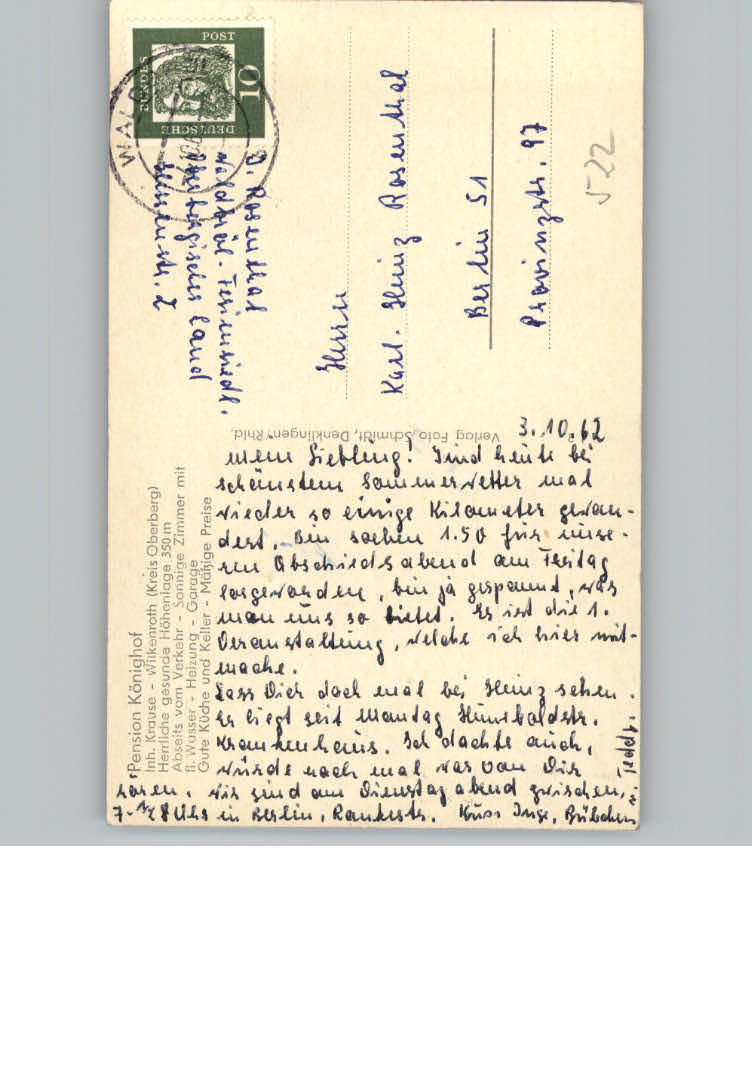 "Pension Könighof
Inh. Krause - Wilkenroth (Kreis Oberberg)
Herrliche gesunde Höhenlage 350 m
Abseits vom Verkehr - Sonnige Zimmer mit
fl. Wasser - Heizung - Garage
Gute Küche und Keller - Mäßige Preise
Verlag Foto-Schmidt, Denklingen/Rhld.
3.10.62
Mein Liebling! Sind heute bei
schönstem Sommerwetter mal
wieder so einige Kilometer gewan-
dert. Bin soeben 1.50 für unse-
ren Abschiedsabend am Freitag
losgeworden, bin ja gespannt, was
man uns so bietet. Es ist die 1.
Veranstaltung, welche ich hier mit-
mache.
Lass Dich doch mal bei Heinz sehen.
Er liegt seit Montag Humboldstr.
Krankenhaus. Ich dachte auch,
würde noch mal was von Dir
hören. Wir sind am Dienstag abend zwischen
7-1/2 8 Uhr in Berlin, Rankestr. Kuss Inge, Bübchen
Teddi
DEUTSCHE BUNDESPOST
10
WALD
J. Rosenthal
Waldbröl-Feriensiedl.
Oberbergisches Land
Herrn
Karl-Heinz Rosenthal
Berlin 51
Provinzstr. 97
522